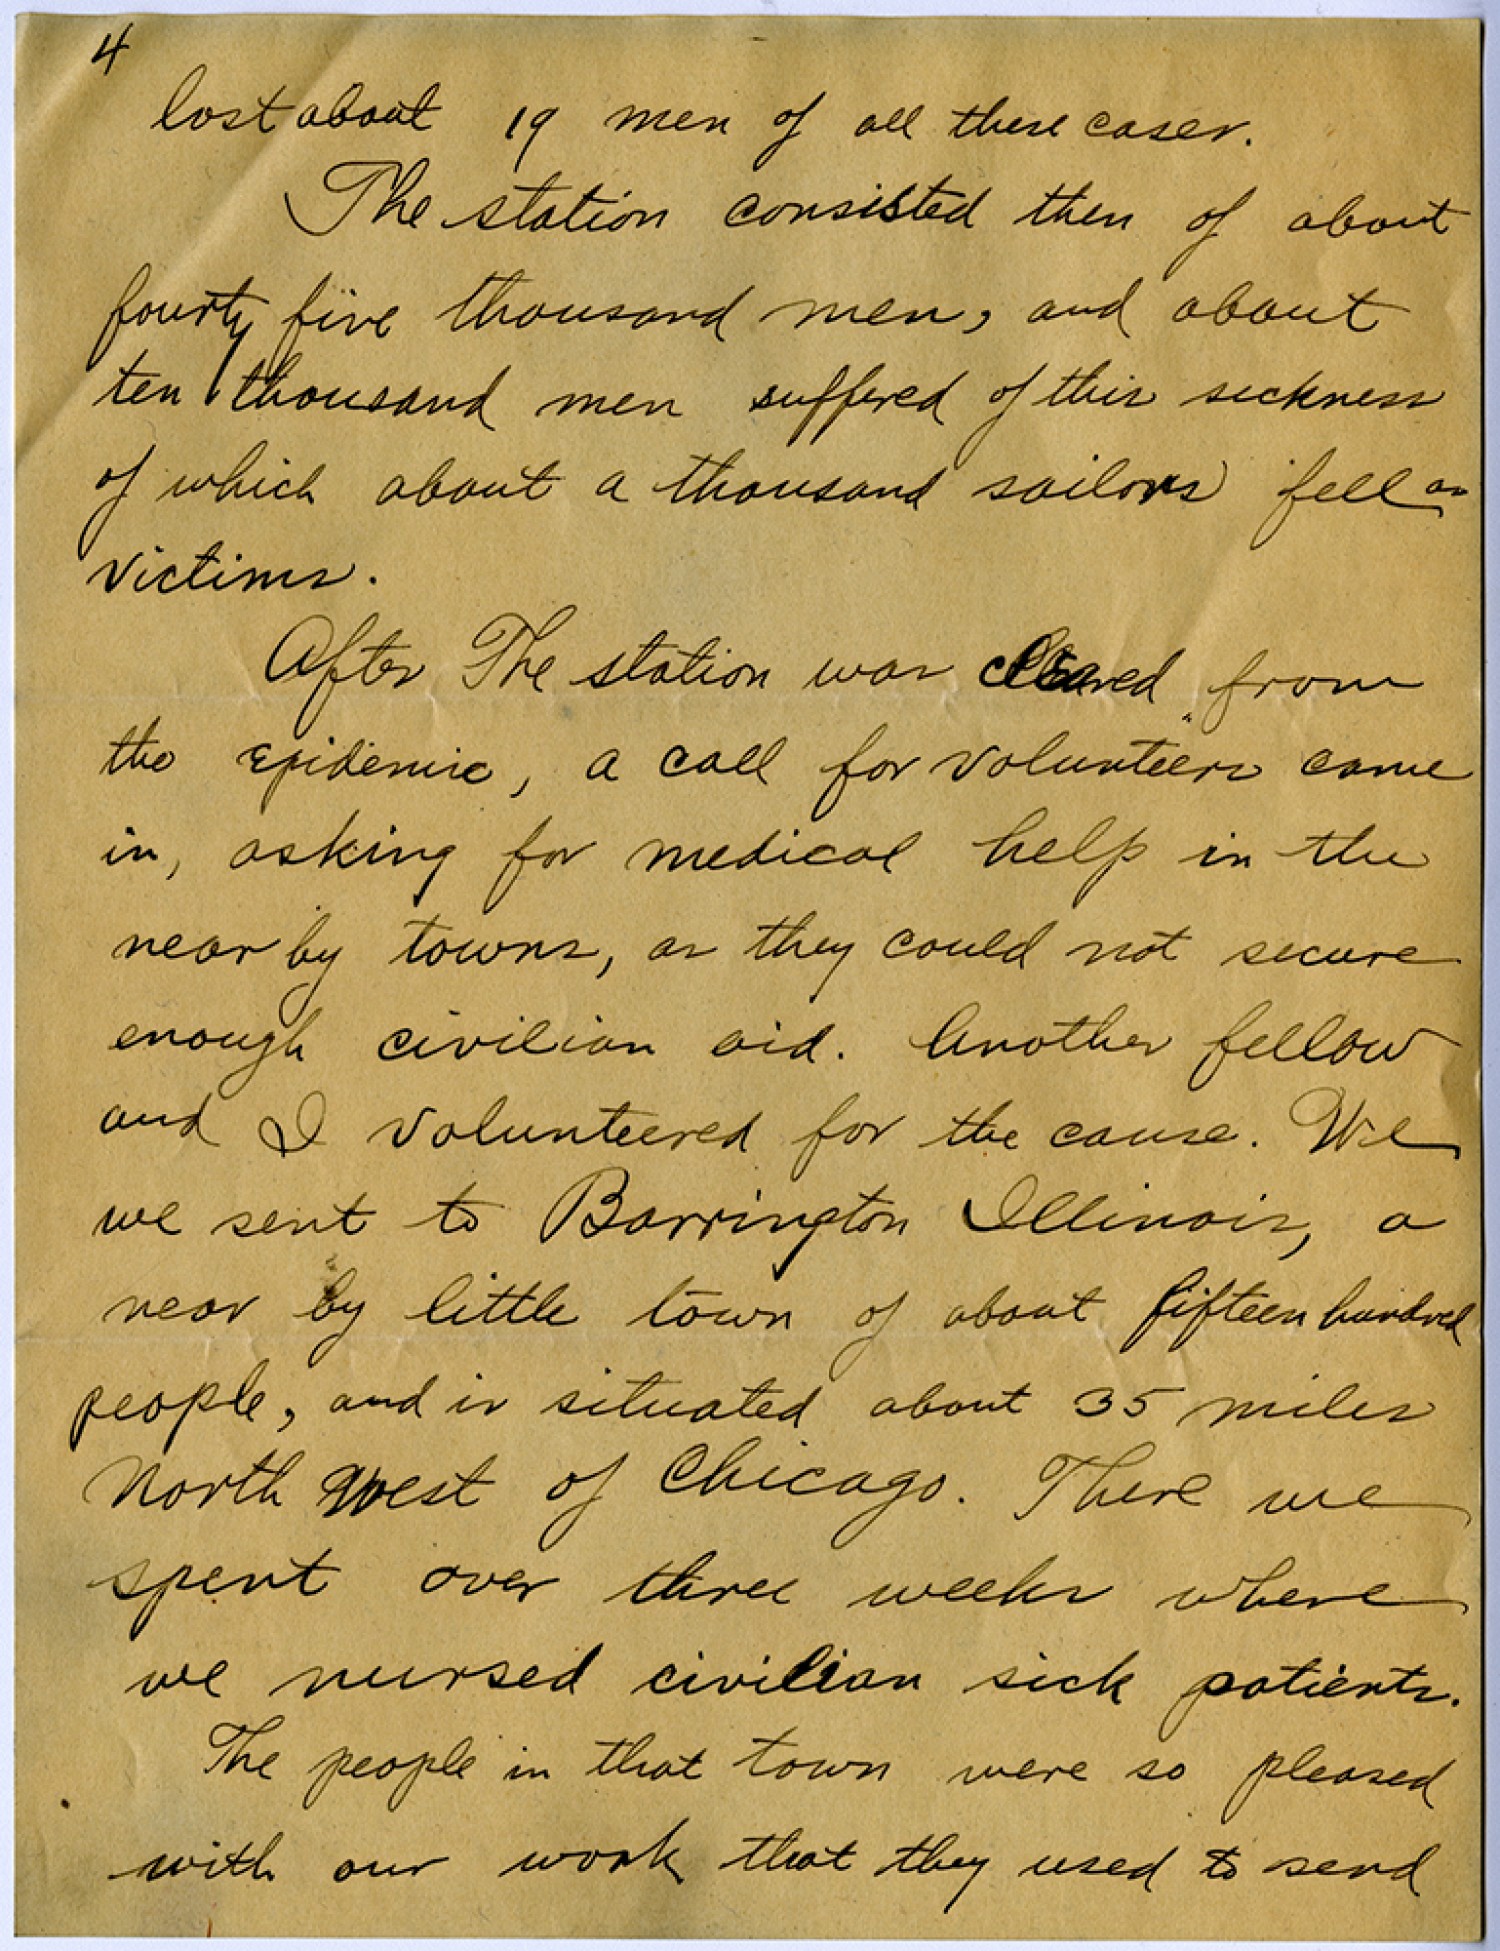 4
lost about 19 men of all these cases.
The station consisted then of about
fourty five thousand men, and about
ten thousand men suffered of this sickness
of which about a thousand sailors fell as
victims.
After The station was cleared from
the epidemic, a call for volunteers came
in, asking for medical help in the
near by towns, as they could not secure
enough civilian aid. Another fellow
and I volunteered for the cause. We
we sent to Barrington Illinois, a
near by little town of about fifteen hundred
people, and is situated about 35 miles
North West of Chicago. There we
spent over three weeks where
we nursed civilian sick patients.
The people in that town were so pleased
with our work that they used to send